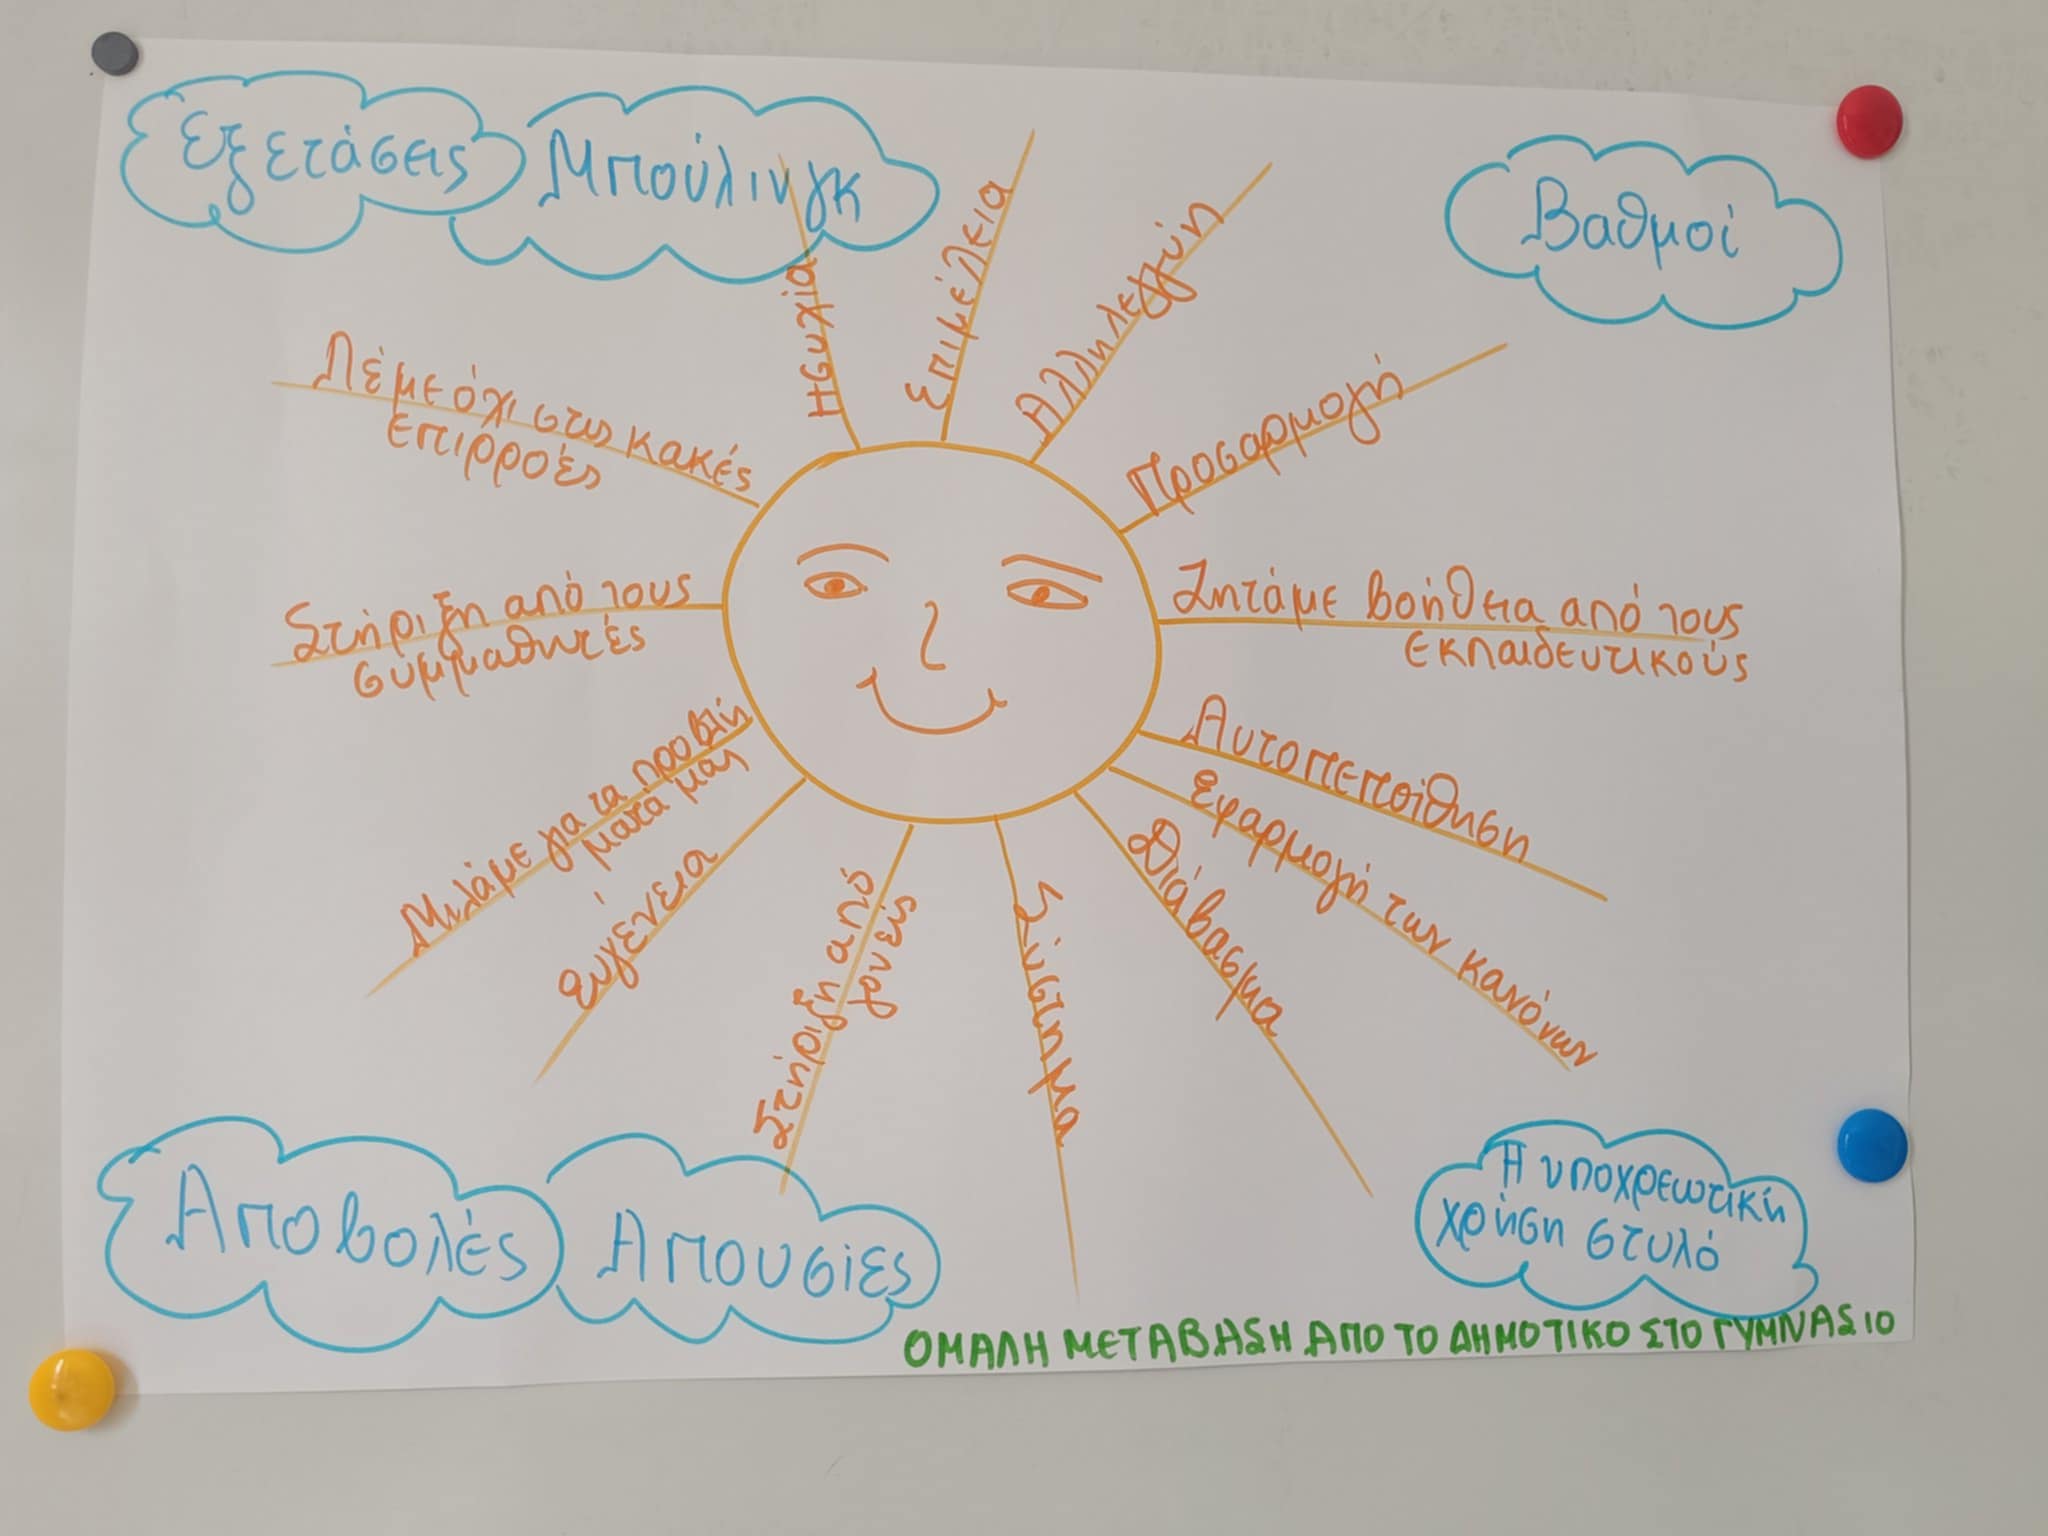 Εξετάσεις
Μπούλινγκ
Βαθμοί
Ησυχία
Επιμέλεια
Αλληλεγγύη
Προσαρμογή
Λέμε όχι στις κακές
επιρροές
Ζητάμε βοήθεια από τους
εκπαιδευτικούς
Στήριξη από τους
συμμαθητές
Αυτοπεποίθηση
Εφαρμογή των κανόνων
Διάβασμα
Σύστημα
Στήριξη από
γονείς
ευγένεια
Μιλάμε για τα προβλή
ματά μας
Αποβολές
Απουσίες
Η υποχρεωτική
χρήση στυλό
ΟΜΑΛΗ ΜΕΤΑΒΑΣΗ ΑΠΟ ΤΟ ΔΗΜΟΤΙΚΟ ΣΤΟ ΓΥΜΝΑΣΙΟ